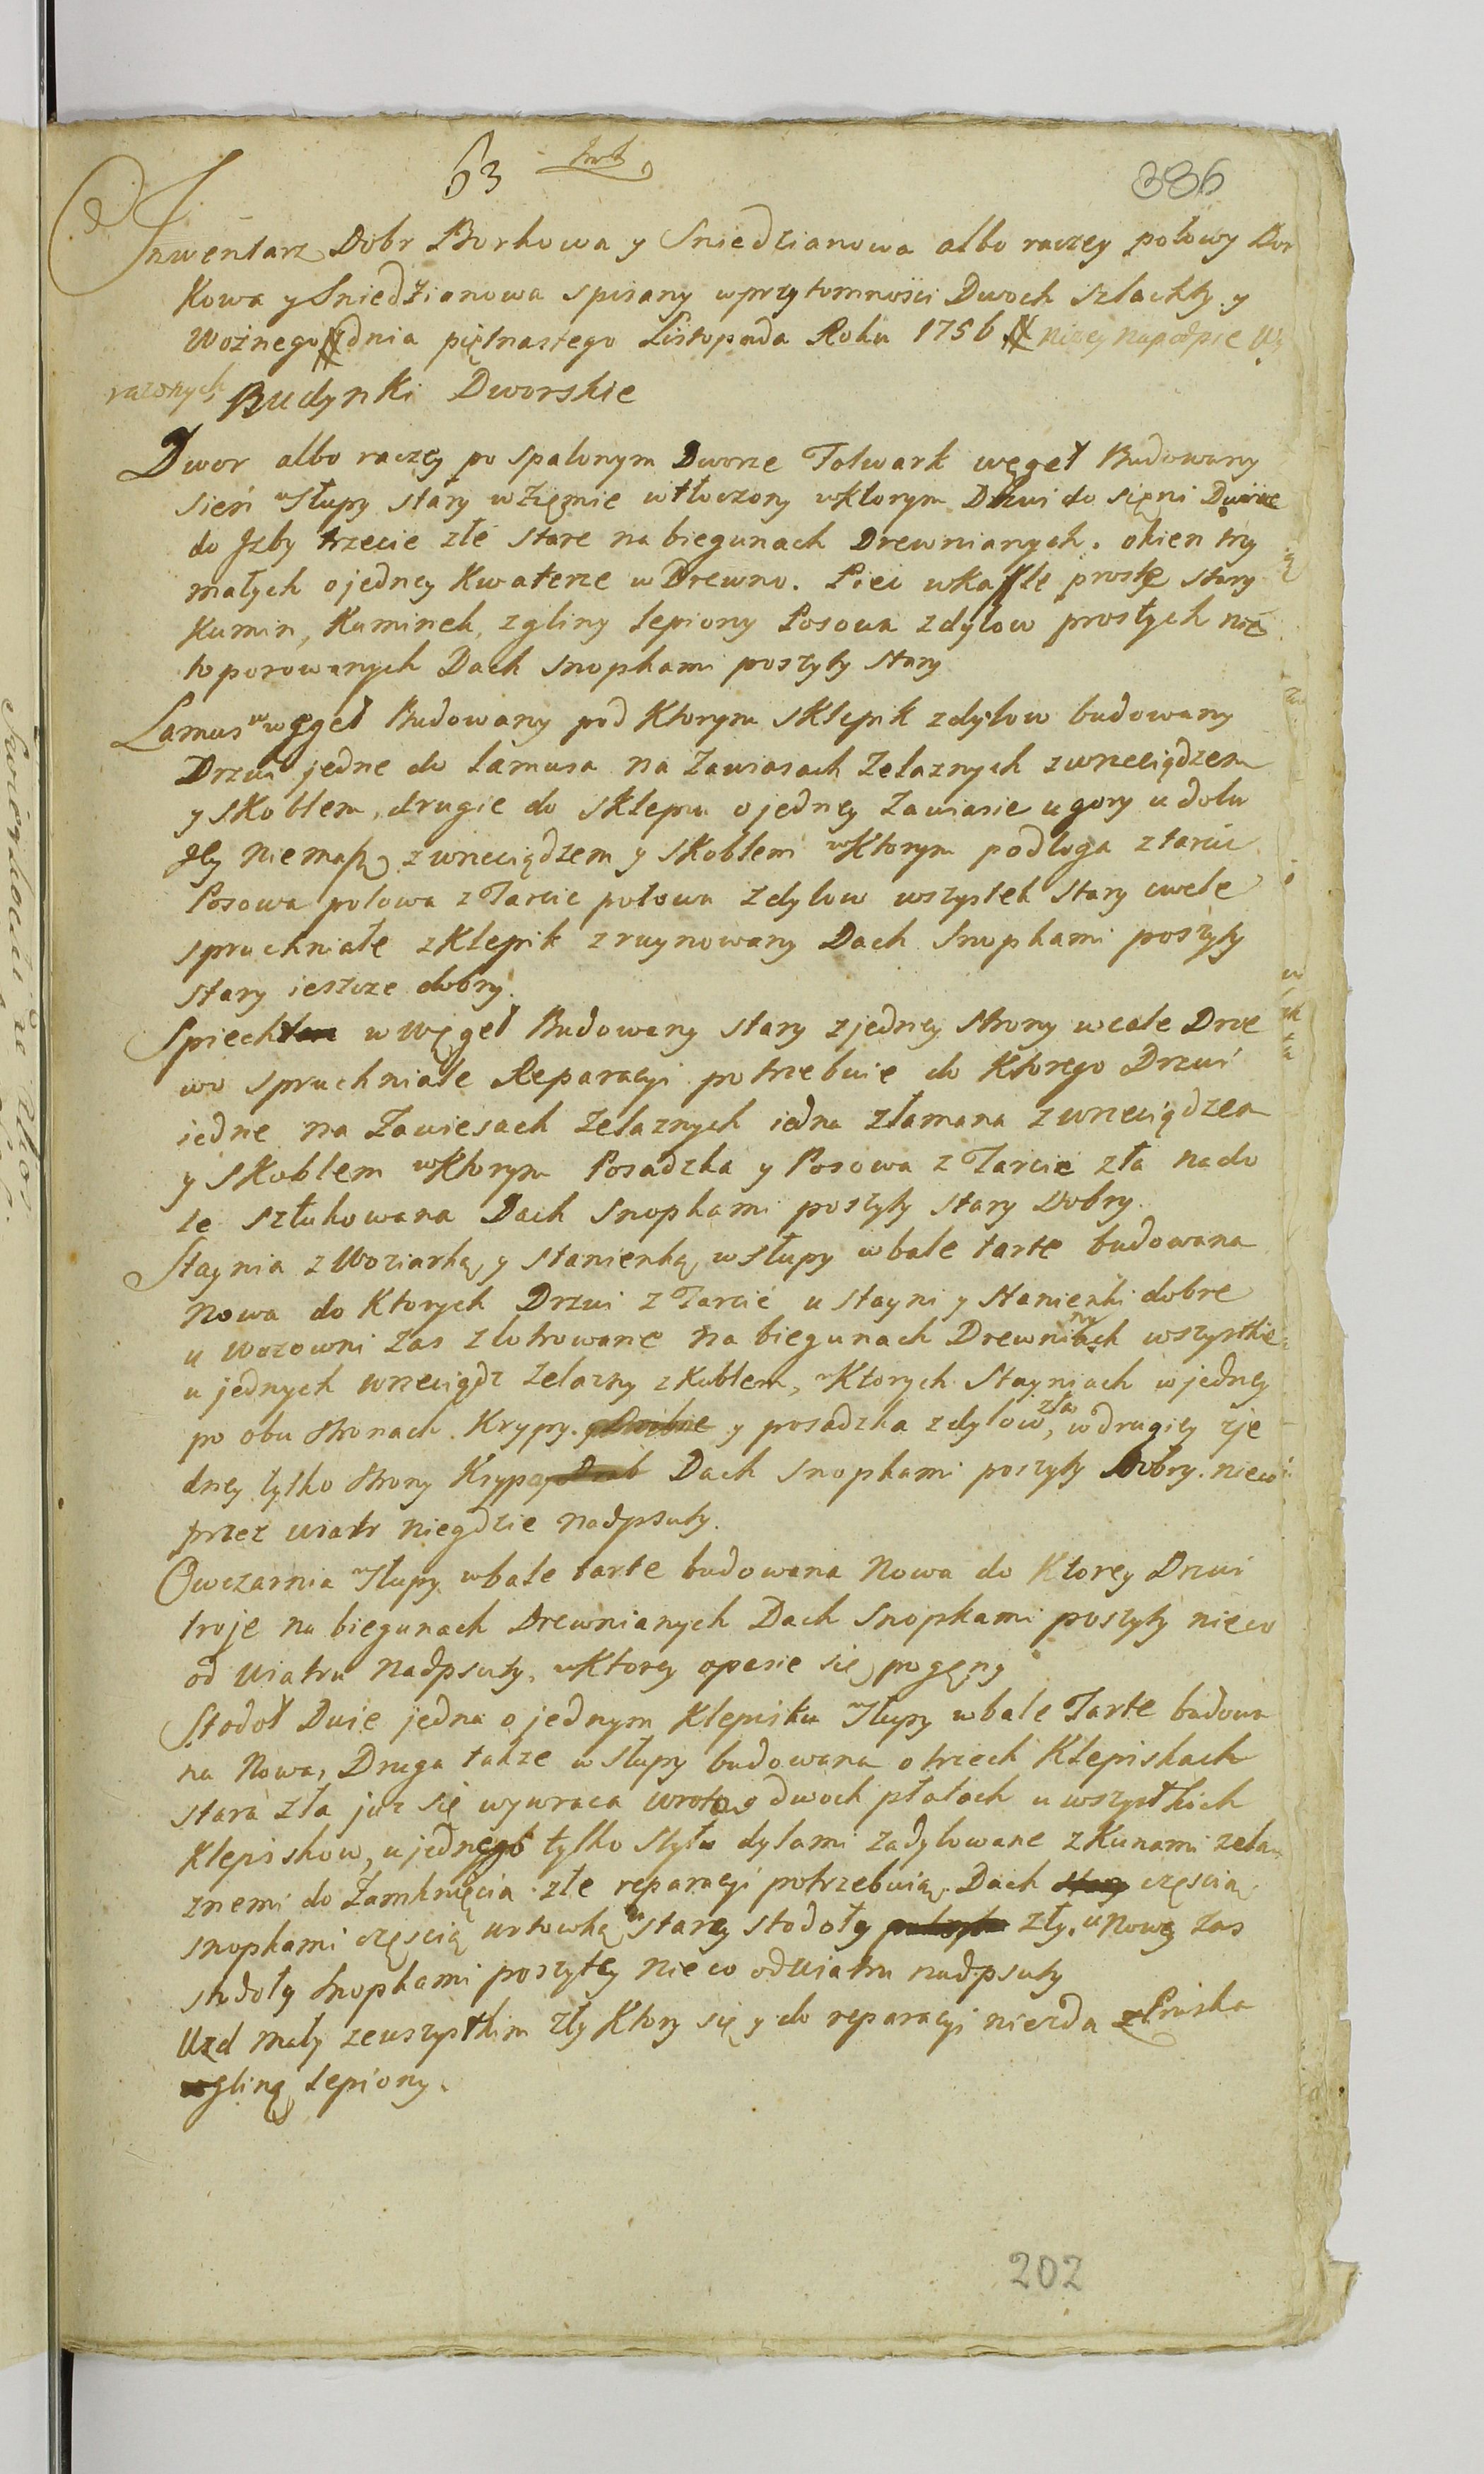 63
386
Inwentarz Dobr Borkowa y Sniedzianowa albo raczey połowy Bor
kowa y Sniedzianowa spisany w przytomnosci Dwoch Szlachty y
Woznego dnia piętnastego Listopada Roku 1756 niżey na podpise Wy
razonych
Budynki Dworskie
Dwor albo raczey po spalonym Dworze Folwark węgeł Budowany
sień w słupy stary w Ziemie wtłoczony w ktorym Drzwi do sięni Dwoie
do Jzby trzecie złe stare na biegunach Drewnianych. okien trzy
małych o jedney Kwaterze w Drewno. Piec w kafle proste stary
Kumin, Kuminek, z gliny lepiony Posowa z dylow prostych nie
toporowanych Dach snopkami poszyty stary
Lamus w węgeł Budowany pod Ktorym Sklepik z dylow budowany
Drzwi jedne do lamusa na Zawiasach Zelaznych z wrzeciądzem
y Skoblem, drugie do sklepu o jedney Zawiasie u gory u dołu
gdy niemasz z wrzeciądzem y Skoblem w Ktorym podłoga z tarcic
Posowa połowa z Tarcic połowa z dylow wszystek Stary cwele
spruchniałe zklepik zruynowany Dach Snopkami poszyty
stary ieszcze dobry.
Spiech w Węgeł Budowany stary z jedney strony wcale Drze
wo spruchniałe Reparacyi potrzebuie do Ktorego Drzwi
iedne na Zawiesach Zelaznych iedna złamana z wrzeciądzem
y Skoblem w Ktorym Posadzka y Posowa z Tarcic zła na do
le sztukowana Dach Snopkami poszyty stary Dobry.
Staynia z Woziarką y stanienką w słupy w bale tarte budowana
Nowa do Ktorych Drzwi z Tarcic u Stayni y Stanienki dobre
u Wozowni Zas zlotrowane na biegunach Drewnianych wszystkie
u jednych wrzeciądz Zelazny z kublem, w Ktorych Stayniach w jedney
po obu stronach Krypy y posadzka z dylow zła, w drugiey z je
dney tylko strony Krypa Dach snopkami poszyty Dobry nieco
przez wiatr niegdzie nadpsuty.
Owczarnia w słupy w bale tarte budowana Nowa do Ktorey Drzwi
troje na biegunach Drewnianych Dach Snopkami poszyty nieco
od Wiatru Nadpsuty, w Ktorey opasie się pogęny
Stodoł Dwie jedna o jednym Klepisku w słupy w bale Tarte budowa
na Nowa, Druga takze w Słupy budowana o trzech Klepiskach
stara zła juz się wywraca wrota o dwoch płatach u wszystkich
Klepiskow, u jednego tylko styłu dylami zadylowane z Kunami zela
znemi do Zamknięcia złe reparacyi potrzebuią. Dach częscią
snopkami częscią urtowką u starey stodoły zły. u Nowey zas
stodoły snopkami poszytey nieco od Wiatru nadpsuty
Uzd mały ze wszystkim zły Ktory się y do reparacyi niezda z Pruska
gliną lepiony.
202